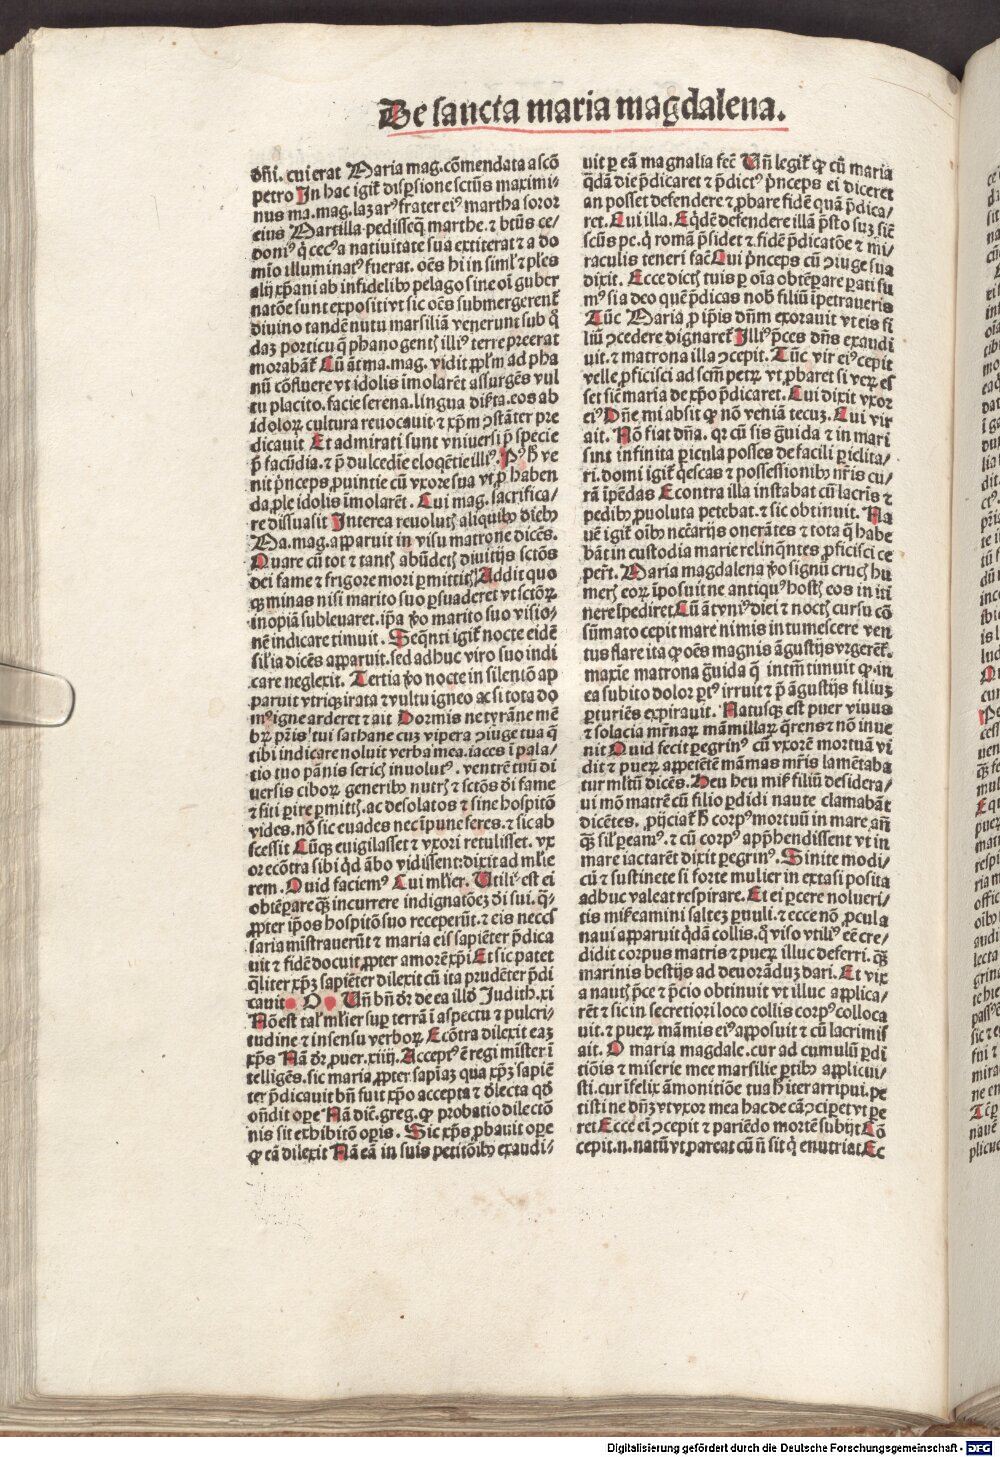 De sancta maria magdalena.
dñi. cui erat Maria mag. cōmendata a scō
petro In hac igiꝉ disꝑsione sctūs maximi-
nus ma. mag. lazarꝰ frater eiꝰ martha soror
eius Martilla pedisseq̄ marthe. ⁊ btūs ce-
doniꝰ q̇ cecꝰa natiuitate sua extiterat ⁊ a do
mīo illuminatꝰ fuerat. oēs hi in siml̕ ⁊ pl̕es
alij xp̄ani ab infidelibꝰ pelago sine oī guber
natōe sunt expositi vt sic oēs submergerenť
diuino tandē nutu marsiliā venerunt sub q̇
daʒ porticu q̄ phano gentꝭ illiꝰ terre preerat
morabāť Cū āt ma. mag. vidit ꝓpl̕m ad pha
nū cōfluere vt idolis imolarēt assurgēs vul
tu placito. facie serena. lingua diẜta. eos ab
idoloꝝ cultura reuocauit ⁊ xp̄m ꝯstāter pre
dicauit Et admirati sunt vniuersi p̄ specie
p̄ facūdia. ⁊ p̄ dulcedīe eloq̄tie illiꝰ. Pꝰ h̄ ve
nit p̄nceps ꝓuintie cū vxore sua vt ꝓ haben
da ꝓle idolis īmolarēt. Cui mag. sacrifica/
re dissuasit Interea reuolutꝭ aliquibꝰ diebꝰ
Ma. mag. apparuit in visu matrone dicēs.
Quare cū tot ⁊ tantꝭ abūdetꝭ diuitijs sctōs
dei fame ⁊ frigore mori ꝑmittitꝭ Addit quo
qꝫ minas nisi marito suo ꝑsuaderet vt sctōꝝ
inopiā subleuaret. ip̄a ꝟo marito suo visio-
nē indicare timuit. Seq̄nti igiť nocte eidē
sil̕ia dicēs apparuit. sed adhuc viro suo indi
care neglexit. Tertia ꝟo nocte in silentō ap
paruit vtriqꝫ irata ⁊ vultu igneo ac si tota do
mꝰ igne arderet ⁊ ait Dormis ne tyrāne mē
br̄ pr̄is tui sathane cuʒ vipera ꝯiuge tua q̄
tibi indicare noluit verba mea. iaces ī pala-
tio tuo pānis sericꝭ inuolutꝰ. ventrē tuū di
uersis ciboꝝ generibꝰ nutrꝭ ⁊ sctōs di fame
⁊ siti ꝑire ꝑmittꝭ. ac desolatos ⁊ sine hospitō
vides. nō sic euades nec īpune feres. ⁊ sic ab
scessit Cūqꝫ euigilasset ⁊ vxori retulisset. vx
or ecōtra sibi qd̕ ābo vidissent: dixit ad ml̕ie
rem. Quid faciemꝰ Cui ml̕ier. Utiliꝰ est ei
obtēꝑare qꝫ incurrere indignatōeʒ di sui. q̄-
ꝓpter ip̄os hospitō suo receperūt. ⁊ eis neccꝭ
saria mīstrauerūt ⁊ maria eis sapiēter p̄dica
uit ⁊ fidē docuit ꝓpter amorē xp̄i Et sic patet
q̄liter xp̄ʒ sapiēter dilexit cū ita prudēter p̄di
cauit O Un̄ bn̄ dr̄ de ea illd̕ Judith. xi
Nō est tal̕ ml̕ier suꝑ terrā ī aspectu ⁊ pulcri-
tudine ⁊ in sensu verboꝝ Ecōtra dilexit eaʒ
xp̄s Nā dr̄ ꝓuer. xiiij. Acceptꝰ ē regi mīster ī
telligēs. sic maria ꝓpter sapiāʒ qua xp̄ʒ sapiē
ter p̄dicauit bn̄ fuit xp̄o accepta ⁊ dilecta qd̕
on̄dit oꝑe Nā dic̄. greg. ꝙ probatio dilectō
nis sit exhibitō oꝑis. Sic xp̄s ꝓbauit oꝑe
ꝙ eā dilexit Nā eā in suis petitōibꝰ exaudi-
uit ꝑ eā magnalia fec̄ Un̄ legiť ꝙ cū maria
q̄dā die p̄dicaret ⁊ p̄dictꝰ p̄nceps ei diceret
an posset defendere ⁊ ꝓbare fidē quā p̄dica/
ret. Cui illa. Eq̄dē defendere illā p̄sto suʒ sic̄
scūs pe. q̇ romā p̄sidet ⁊ fidē p̄dicatōe ⁊ mi/
raculis teneri fac̄ Cui p̄nceps cū ꝯiuge sua
dixit. Ecce dictꝭ tuis ꝑ oīa obtēꝑare ꝑati su
mꝰ si a deo quē p̄dicas nob̕ filiū īpetraueris
Tūc Maria ꝓ ip̄is dn̄m exorauit vt eis fi
liū ꝯcedere dignareť Illiꝰ p̄ces dn̄s exaudi
uit. ⁊ matrona illa ꝯcepit. Tūc vir eiꝰ cepit
velle ꝓficisci ad scm̄ petꝝ vt ꝓbaret si veꝝ es
set sic̄ maria de xp̄o p̄dicaret. Cui dixit vxor
eiꝰ Dn̄e mi absit ꝙ nō veniā tecuʒ. Cui vir
ait. Nō fiat dn̄a. qꝛ cū sis g̃uida ⁊ in mari
sint infinita ꝑicula posses de facili ꝑiclita/
ri. domi igiť q̇escas ⁊ possessionibꝰ nr̄is cu/
rā īpēdas Econtra illa instabat cū lacrīs ⁊
pedibꝰ ꝓuoluta petebat. ⁊ sic obtinuit. Na
uē igiť oībꝰ necc̄arijs onerātes ⁊ tota q̄ habe
bāt in custodia marie relinq̄ntes ꝓficisci ce
peřt. Maria magdalena ꝟo signū crucꝭ hu
merꝭ eoꝝ īposuit ne antiquꝰ hostꝭ eos in iti
nere īpediret Cū āt vniꝰ diei ⁊ noctꝭ cursu cō
sūmato cepit mare nimis intumescere ven
tus flare ita ꝙ oēs magnis āgustijs vrgerenť.
maxīe matrona g̃uida q̄ intm̄ timuit ꝙ in
ea subito dolor ꝑtꝰ irruit ⁊ p̄ āgustijs filiuʒ
ꝑturiēs expirauit. Natusqꝫ est puer viuus
⁊ solacia mr̄naꝝ māmillaꝝ q̄rens ⁊ nō inue
nit Quid fecit ꝑegrinꝰ cū vxorē mortuā vi
dit ⁊ pueꝝ appetētē māmas mr̄is lamētaba
tur ml̕tū dicēs. Heu heu miẜ filiū desidera/
ui mō matrē cū filio ꝑdidi naute clamabāt
dicētes. ꝓijciať h̄ corpꝰ mortuū in mare an̄
qꝫ sil̕ ꝑeamꝰ. ⁊ cū corpꝰ app̄hendissent vt in
mare iactarēt dixit ꝑegrinꝰ. Sinite modi/
cū ⁊ sustinete si forte mulier in extasi posita
adhuc valeat respirare. Et ei ꝑcere nolueri/
tis miẜeamini salteʒ ꝑuuli. ⁊ ecce nō ꝓcul a
naui apparuit q̇dā collis. q̇ viso vtiliꝰ eē cre/
didit corpus matris ⁊ pueꝝ illuc deferri. qꝫ
marinis bestijs ad deuorāduʒ dari. Et vix
a nautꝭ p̄ce ⁊ p̄cio obtinuit vt illuc applica/
rēt ⁊ sic in secretiori loco collis corpꝰ colloca
uit. ⁊ pueꝝ māmis eiꝰ apposuit ⁊ cū lacrimis
ait. O maria magdale. cur ad cumulū ꝑdi
tiōis ⁊ miserie mee marsilie ꝑtibꝰ applicui/
sti. cur īfelix āmonitiōe tua h̄ iter arripui. pe
tisti ne dn̄ʒ vt vxor mea hac de cā ꝯciꝑet vt ꝑe
ret Ecce eī ꝯcepit ⁊ pariēdo mortē subijt Cō
cepit. n. natū vt pareat cū n̄ sit q̇ enutriat Ec
Digitalisierung gefördert durch die Deutsche Forschungsgemeinschaft - DFG